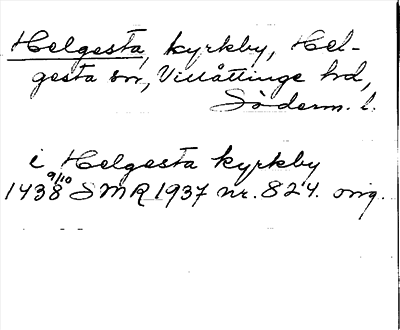 Helgesta, kyrkby, Hel-
gesta sn, Villåttinge hd,
Söderm. l.
i Helgesta kyrkby
1438 9/10 SMR 1937 nr. 824. orig.